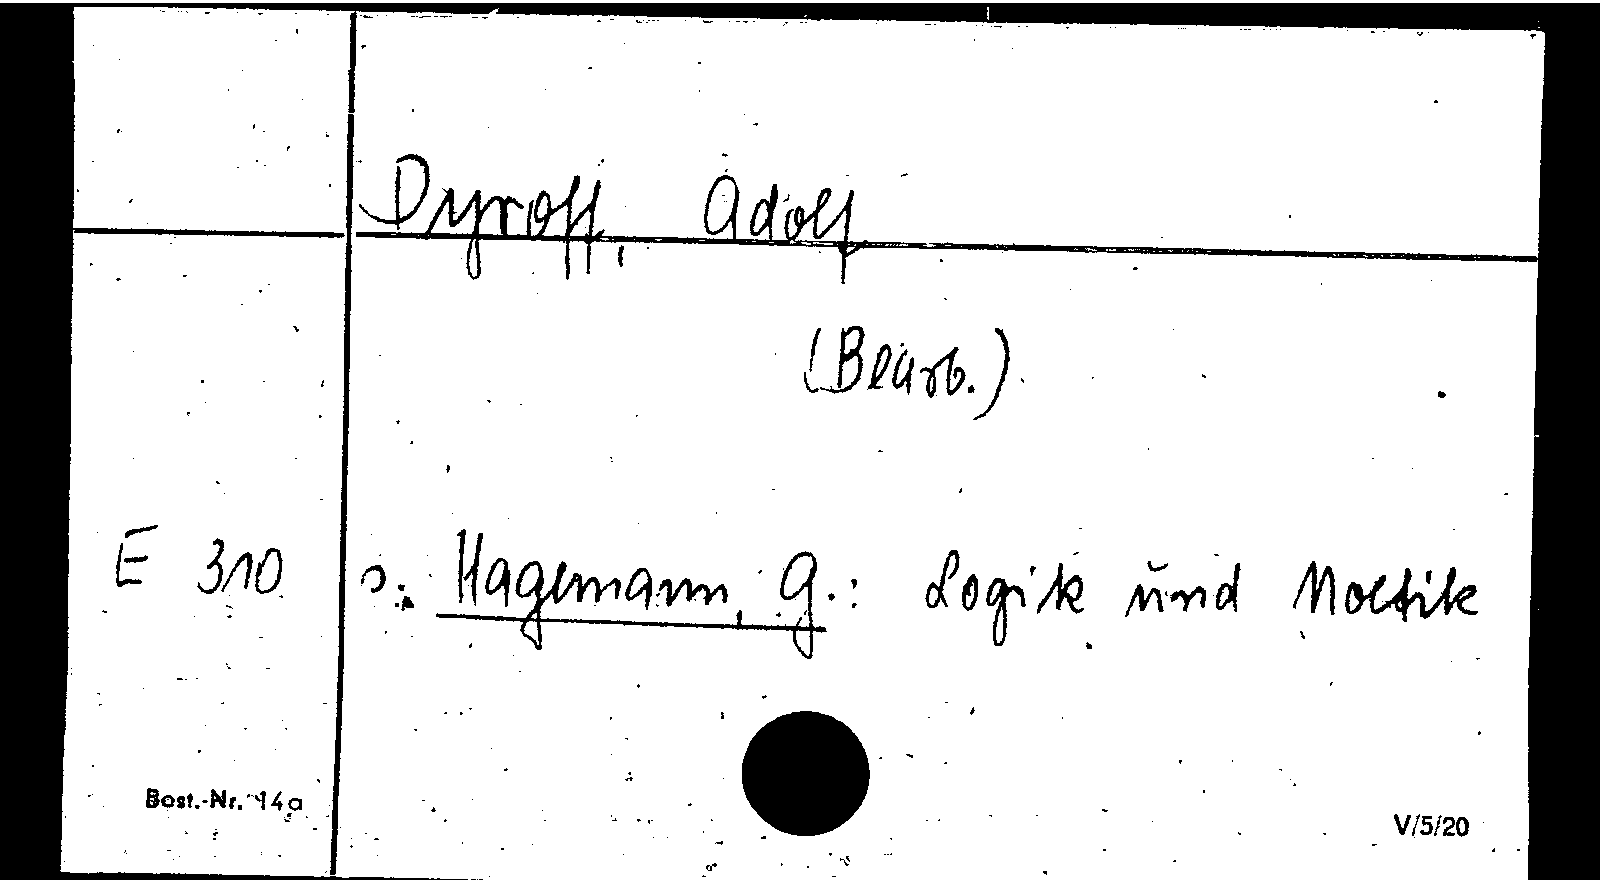 Dyroff, Adolf
(Bearb.)
E 310 s. Hagemann, G.: Logik und Noetik
Best.-Nr. 14a
V/5/20